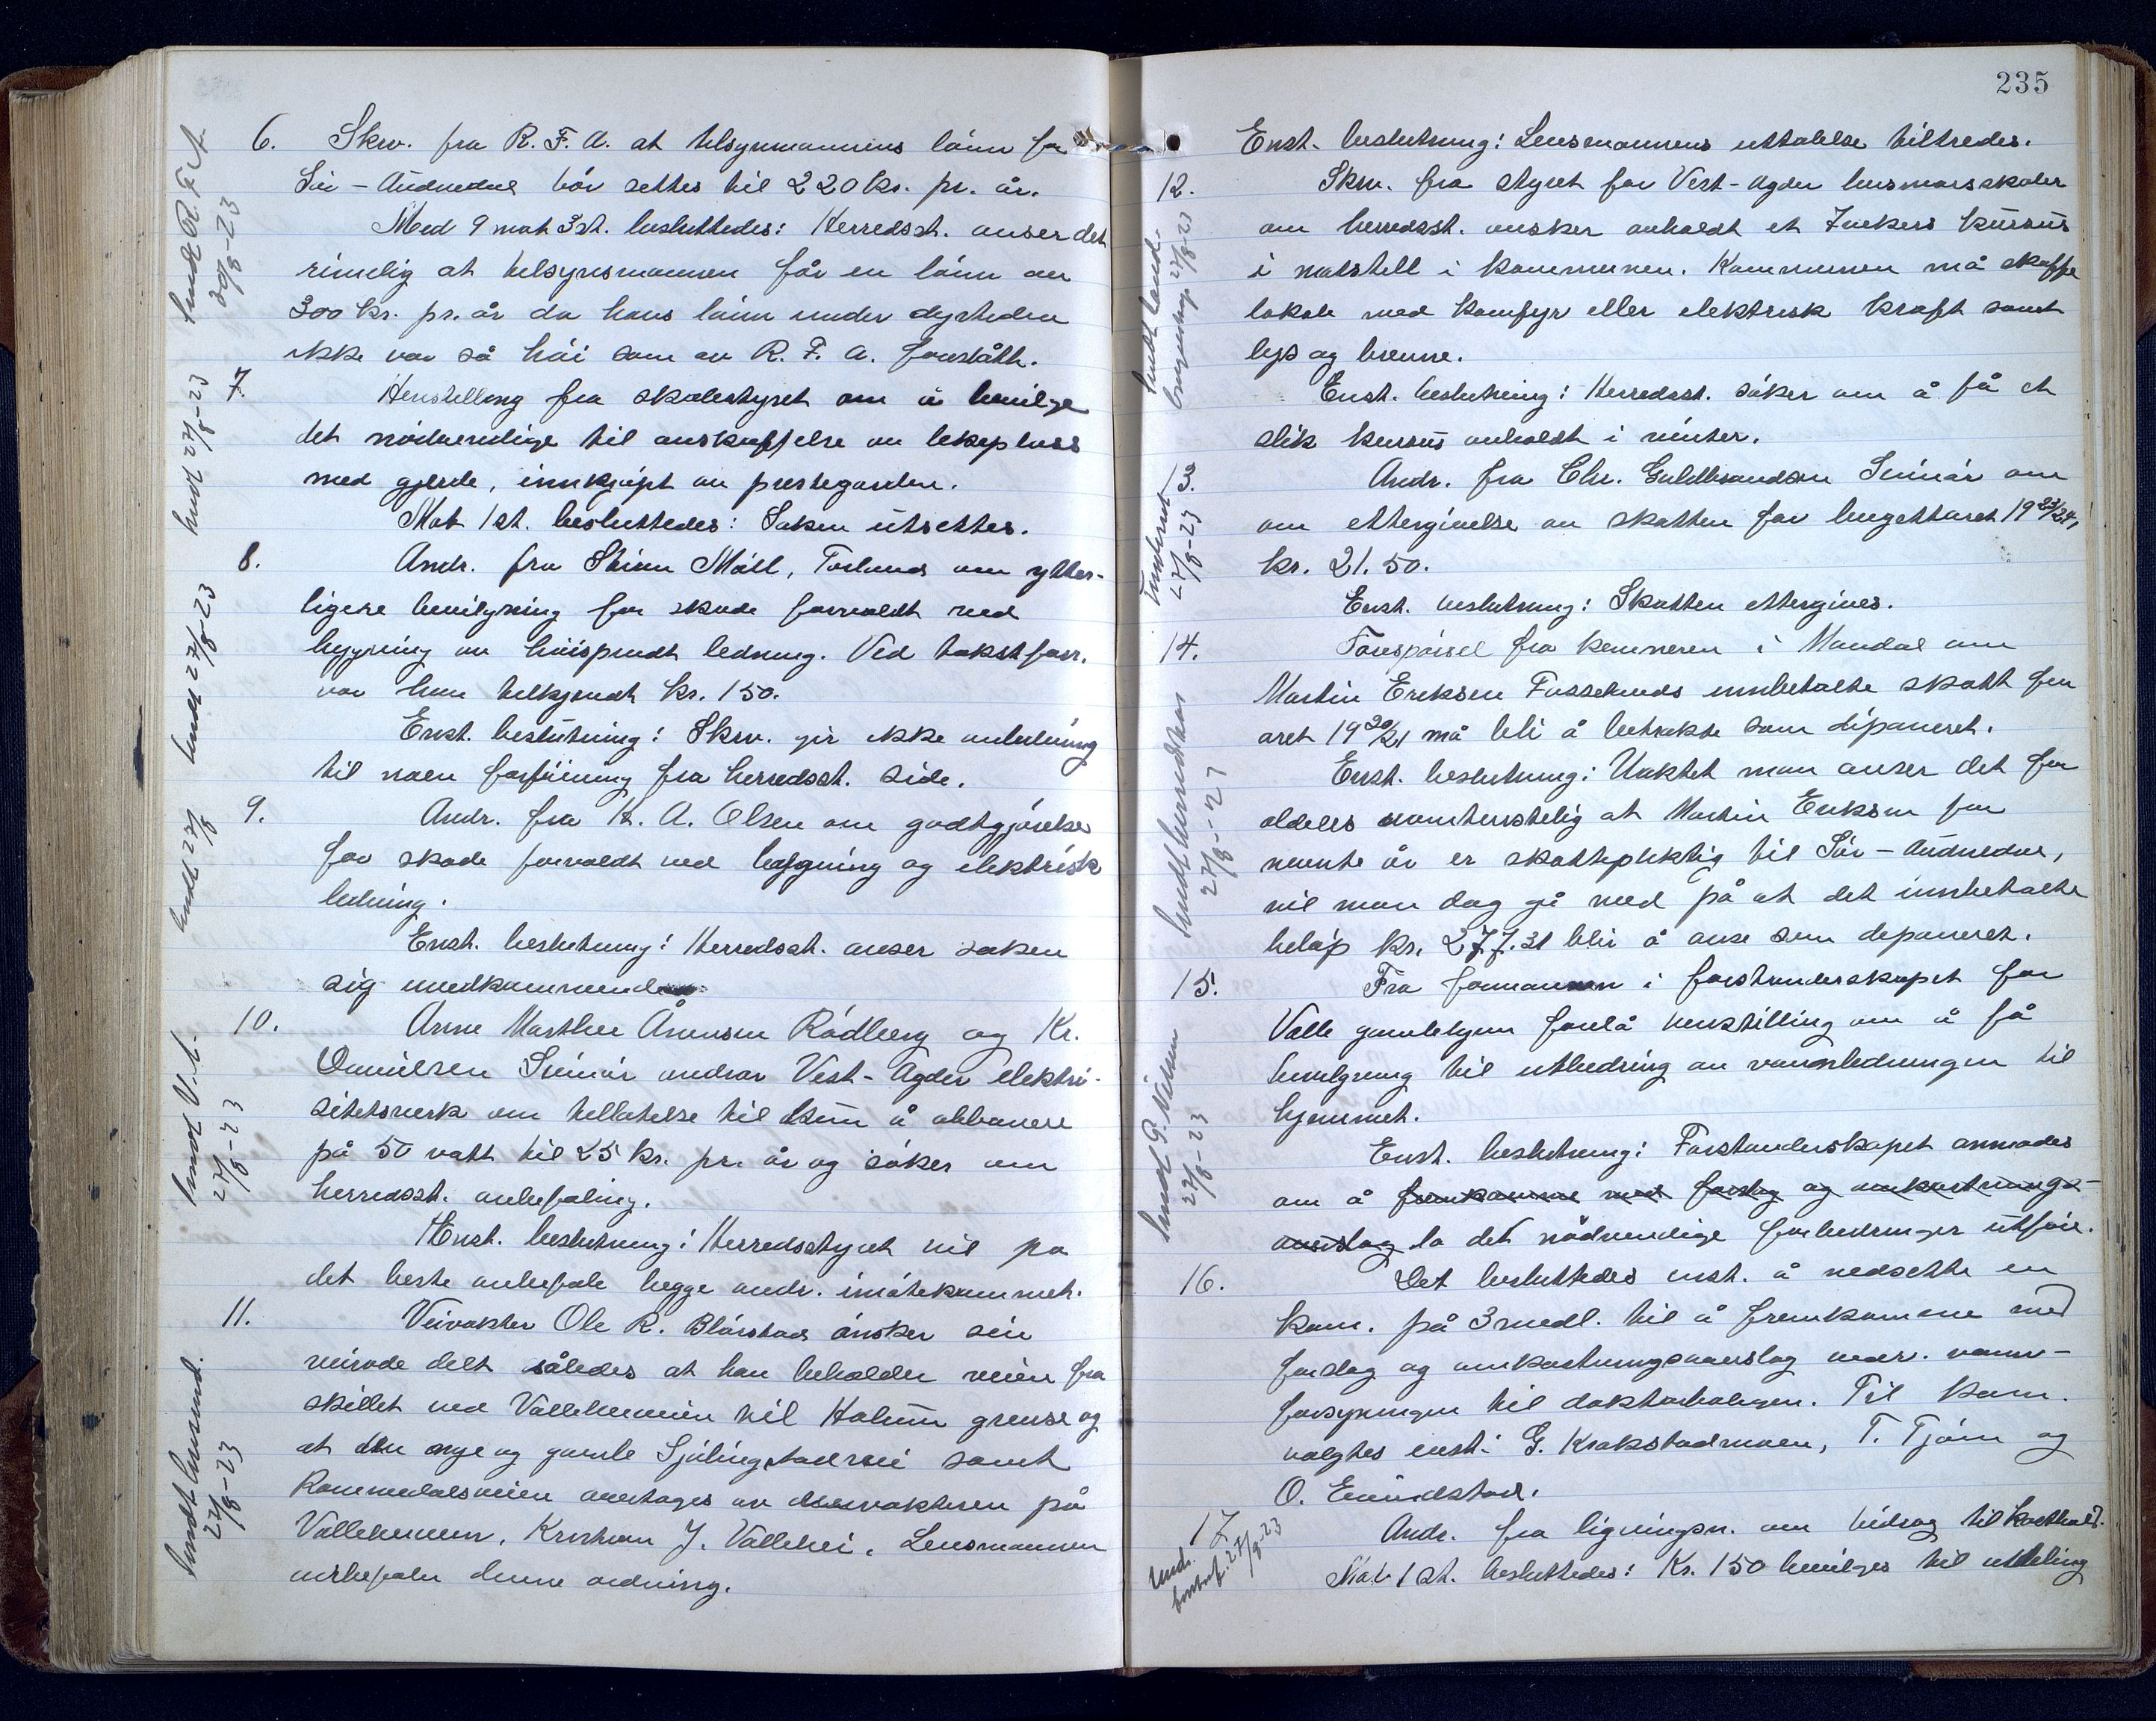 6. Skrv. fra R. F. A. at tilsynmannens lönn for
Sör-Audnedal bör settes til 220 kr. pr. år.
Med 9 mot 3 st. besluttedes: Herredsst. anser det
rimelig at tilsynsmannen får en lönn av
300 kr. pr. år da hans lönn under dyrtiden
ikke var så höi som av R. F. A. forstått.
7. Henstilling fra skolestyret om å bevilge
det nödvendige til anskaffelse av lekeplass
med gjerde, innkjöpt av prestegarden.
Mot 1 st. besluttedes: Saken utsettes.
8. Andr. fra Stian Möll, om ytter-
ligere bevilgning for skade forvoldt ved
bygning av höispendt ledning. Ved takstforr.
var hun tilkjendt kr. 150.
Enst. beslutning: Skrv. gir ikke anledning
til noen forföining fra herredsst. side.
9. Andr. fra K. A. Olsen om godtgjörelse
for skade forvoldt ved bygning og elektrisk
ledning.
Enst. beslutning: Herredsst. anser saken
sig uvedkommende
10. Anne Marthea Årensen Rödberg og Kr.
Danielsen Svinör andrar Vest-Agder elektri-
sitetsverk om tillatelse til kun å abbonere
på 50 vatt til 25 kr. pr. år og söker om
herredsst. anbefaling.
Enst. beslutning: Herredsstyret vil på
det beste anbefale begge andr. imötekommet.
11. Veivokter Ole R. Blörstad önsker sin
veirode delt således at han beholder veien fra
skillet ved Valleheveien til Halum grense og
at den nye og gamle Sjölingstadvei samt
Kommedalsveien overtages av veivokteren på
Valleheveien, Kristian J. Vallehei. Lensmannen
anbefaler denne ordning.
sendt R. F. A.
30/8-23
sendt 27/8-23
sendt 27/8-23
sendt 27/8
sendt V.A.
27/8-23
sendt lensmd.
27/8-23
235
Enst. beslutning: Lensmannens uttalelse tiltredes.
12. Skrv. fra styret for Vest-Agder husmorsskoler
om herredsst. önsker avholdt et 7 ukers kursus
i matstell i kommunen. Kommunen må skaffe
lokale med komfyr eller elektrisk kraft samt
lys og brenne.
Enst. beslutning: Herredsst. söker om å få et
slik kursus avholdt i vinter.
3. Andr. fra Chr. Guldbrandsen Svinör om
om ettergivelse av skatten for bugettåret 1923/24,
kr. 21.50.
Enst. beslutning: Skatten ettergives.
14. Forespörsel fra kemneren i Mandal om
Martin Eriksen innbetalte skatt for
året 1920/21 må bli å betrakte som diponeret.
Enst. beslutning: Uaktet man anser det for
aldeles uomtvistelig at Martin Eriksen for
nevnte år er skattepliktig til Sör-Audnedal,
vil man dog gå med på at det innbetalte
belöp kr. 277.31 blir å anse som deponeret.
15. Fra formannen i forstanderskapet for
Valle gamlehjem forelå henstilling om å få
bevilgning til utbedring av vannledningen til
hjemmet.
Enst. beslutning: Forstanderskapet anmodes
om å fremkomme med forslag og omkostnings-
overslag la det nödvendige forbedringer utföre.
16. Det besluttedes enst. å nedsette en
kom. på 3 medl. til å fremkomme med
forslag og omkostningsoverslag vedr. vann-
forsyningen til doktorboligen. Til kom.
valgtes enst: G. Krokstadmoen, T. Tjöm og
O. Eivindstad.
17. Andr. fra ligningsn. om bidrag til kosthold.
Mot 1 st. besluttedes: Kr. 150 bevilges til utdeling
sendt landbruksselskap 27/8-23
Underrett
27/8-23
sendt kemneren
27/8-23
sendt P. Nilsen
27/8-23
Und. 27/8-23